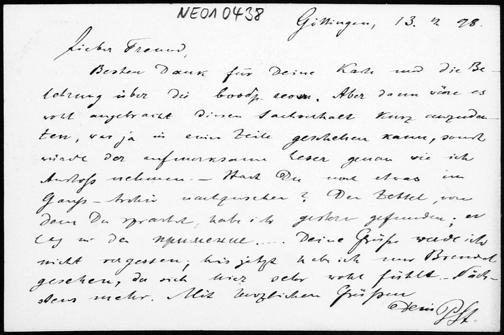 NEO10438
Göttingen, 13. 2 28.
Lieber Freund,
Besten Dank für Deine Karte und die Be-
lehrung über die  Aber dann wäre es
wohl angebracht diesen Sachverhalt kurz anzudeu-
ten, was ja in einer Zeile geschehen kann, sonst
würde der aufmerksame Leser genau wie ich
Anstoss nehmen. – Hast Du noch etwas im
Gauss-Archiv nachzusehen? Den Zettel, von
dem Du sprachst, habe ich gestern gefunden; er
lag in der  .... Deine Grüsse werde ich
nicht vergessen; bis jetzt hab ich nur 
gesehen, der sich hier sehr wohl fühlt. – Näch-
stens mehr. Mit herzlichen Grüßen
Dein